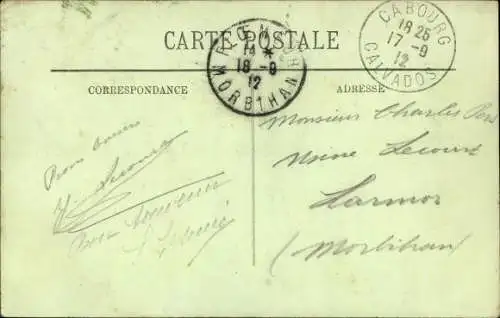 CARTE POSTALE
CORRESPONDANCE
ADRESSE
CABOURG
18 25
17 - 9
12
CALVADOS
18 - 9
12
MORBIHAN
Bon
Lecourt
Bon souvenir
Monsieur Charles
Usine Lecourt
Larmor
(Morbihan)